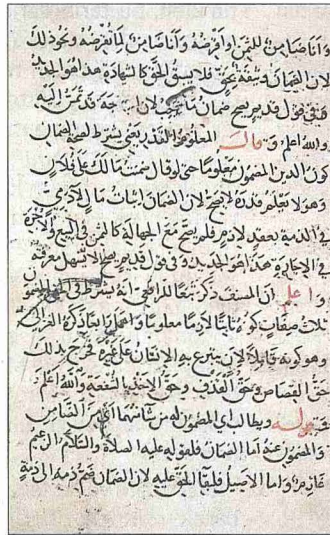 وانا ضامن للثمن او اقرضه وانا ضامن لما تقرضه ونحو ذلك
لان الضمان وثيقة بحق فلا يسبق الحق كالشهادة هذا هو الجديد
وفي قول قديم يصح ضمان ما سيجب لان الحاجة قد تمس اليه
والله اعلم وقال المعلوم
كون الدين المضمون معلوما حتى لو قال ضمنت مالك على فلان
وهو لا يعلم قدره لم يصح لان الضمان اثبات مال لآدمي
في الذمة بعقد لازم فلم يصح مع الجهالة كالثمن في البيع والاجرة
في الاجارة هذا هو الجديد وفي قول قديم يصح لا تسهل معرفته
واعلم ان المصنف ذكر تبعا للرافعي انه يشترط في
ثلاث صفات كونه ثابتا لازما معلوما واهملا رابعا ذكره الغزالي
وهو كونه قابلا لان يتبرع به الانسان على غيره فخرج بذلك
حق القصاص وحق القذف وحق الاخذ بالشفعة والله اعلم
قوله ويطالب اي المضمون له من شا منهما اي من الضامن
والمضمون عنه اما الضمان فلقوله عليه الصلاة والسلام الزعيم
غارم واما الاصيل فلبقا الحق عليه لان الضمان ضم ذمة الى ذمة